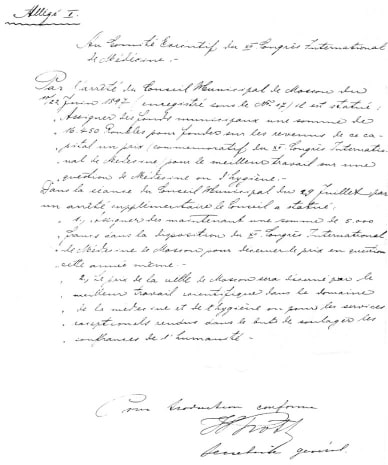 Allégé I.
Au Comité Executif du XII Congrès International
de Médecine. -
Par l'arrêté du Conseil Municipal de Moscou du
22 Juin 1897 (enregistré sous le № 17) il est statué:
Assigner des fonds municipaux une somme de
Roubles pour fonder sur les revenus de ce ca-
pital un prix (commémoratif du XII Congrès Internatio-
nal de Médecine) pour le meilleur travail sur une
question de Médecine ou d'hygiène. -
Dans la séance du Conseil Municipal du 29 Juillet par
un arrêté supplémentaire le Conseil a statué:
1, assigner dès maintenant une somme de 5.000
francs sous la disposition du XII Congrès International
de Médecine de Moscou pour decerner le prix en question
cette année même. -
2, Le prix de la ville de Moscou sera décerné par le
meilleur travail scientifique dans le domaine
de la médecine et de l'hygiène ou pour les services
exceptionels rendus dans le but de soulager les
souffrances de l'humanité. -
Pour traduction conforme
Secrétaire général.